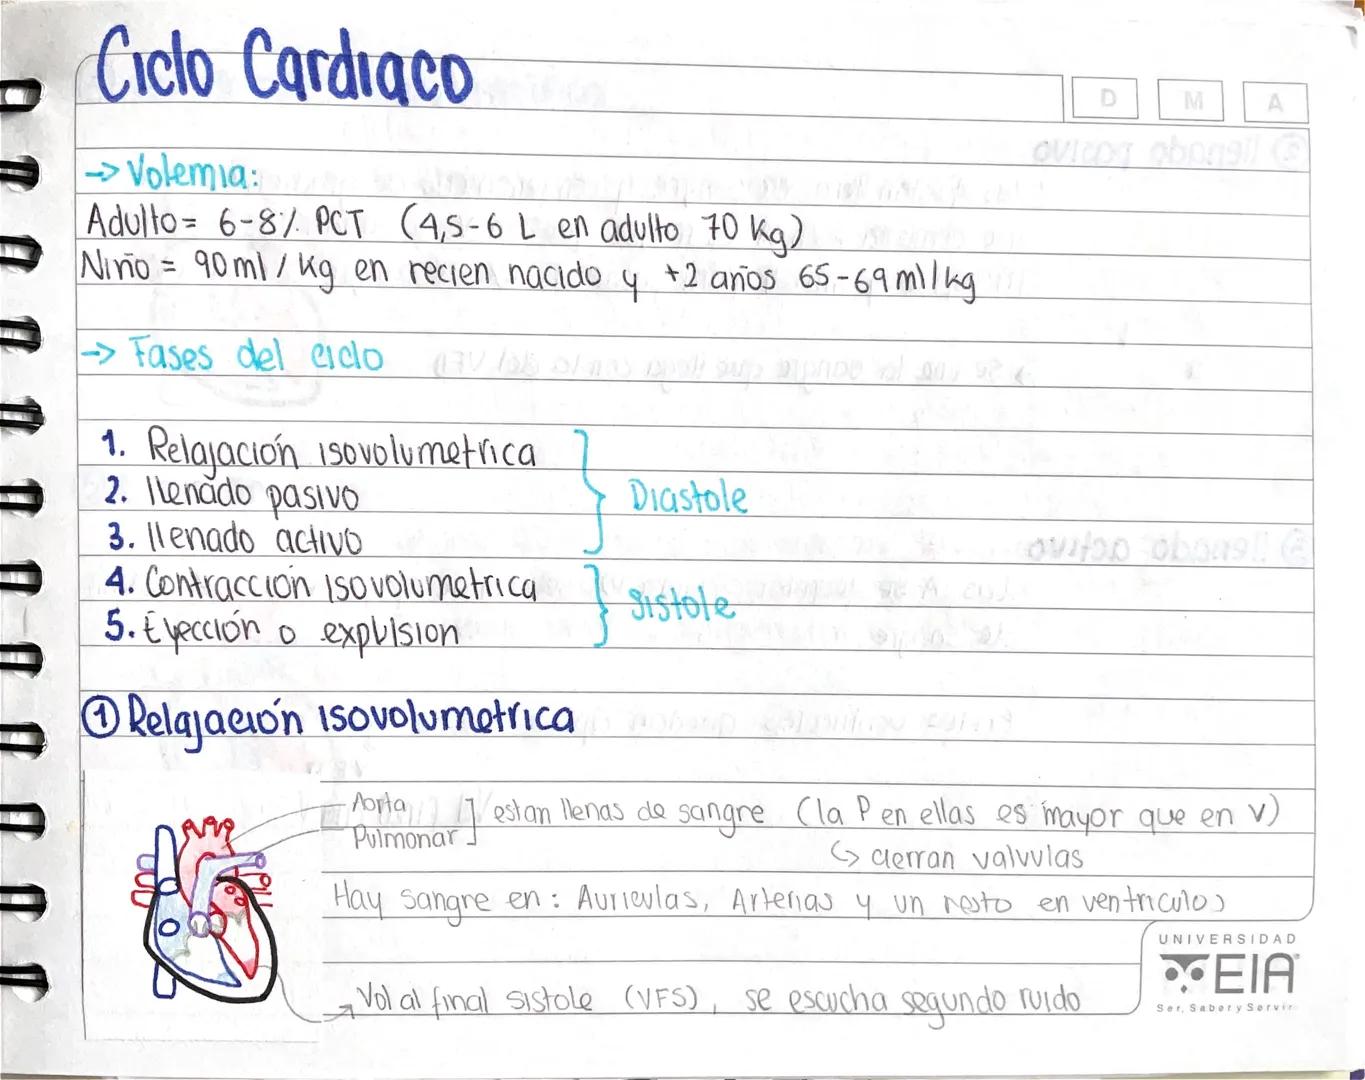 Ciclo Cardiaco
D M A
-> Volemia:
Adulto = 6-8% PCT (4,5-6 L en adulto 70 Kg)
Niño = 90 ml / Kg en recien nacido y +2 años 65-69 ml/kg
-> Fases del ciclo
1. Relajación isovolumetrica
2. llenado pasivo
Diastole
3. llenado activo
4. Contracción isovolumetrica
Sistole
5. Eyección o expulsion
① Relajación isovolumetrica
Aorta
Pulmonar
estan llenas de sangre (la P en ellas es mayor que en V)
↳ cierran valvulas
Hay sangre en: Auriculas, Arterias y un resto en ventriculos
UNIVERSIDAD
EIA
Ser, Saber y Servir
→ Vol al final sistole (VFS), se escucha segundo ruido